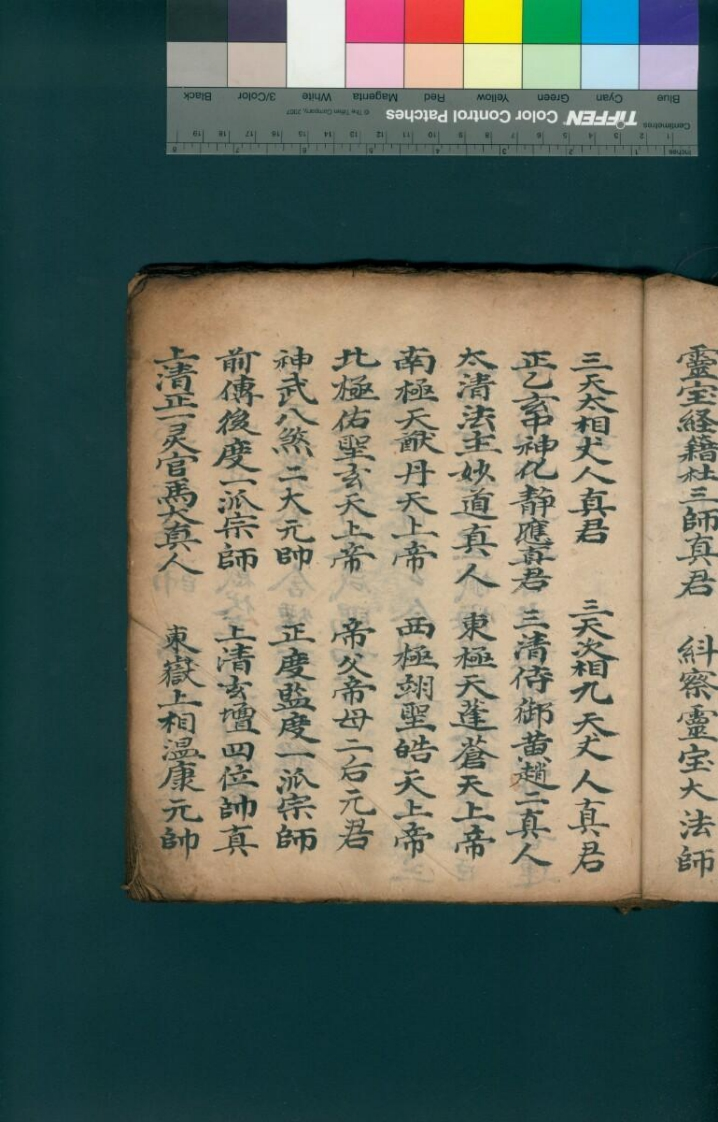 Blue Cyan Green Yellow Red Magenta White 3/Color Black
TIFFEN Color Control Patches © The Tiffen Company, 2007
Centimetres 1 2 3 4 5 6 7 8 9 10 11 12 13 14 15 16 17 18 19
Inches 1 2 3 4 5 6 7 8
靈宝経籍社三師真君 糾察靈宝大法師
三天太相丈人真君 三天次相九天丈人真君
正乙玄中神化靜應真君 三清侍御黄趙二真人
太清法主妙道真人 東極天蓬蒼天上帝
南極天猷丹天上帝 西極翊聖皓天上帝
北極佑聖玄天上帝 帝父帝母二后元君
神武八煞二大元帥 正度監度一派宗師
前傳後度一派宗師 上清玄壇四位帥真
上清正一灵官馬大真人 東嶽上相温康元帥